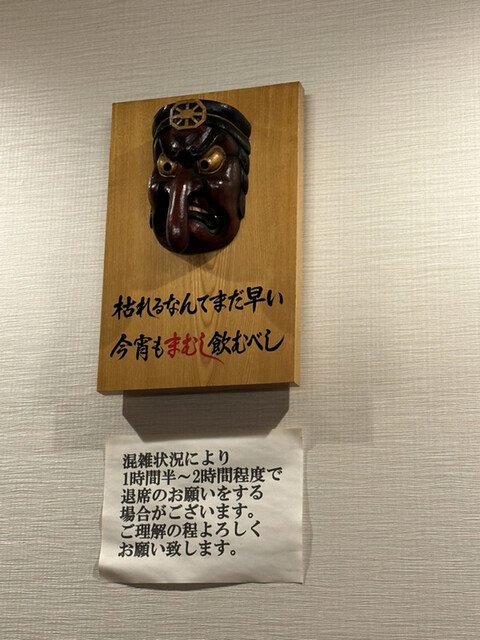 枯れるなんてまだ早い
今宵もまむし飲むべし
混雑状況により
1時間半～2時間程度で
退席のお願いをする
場合がございます。
ご理解の程よろしく
お願い致します。